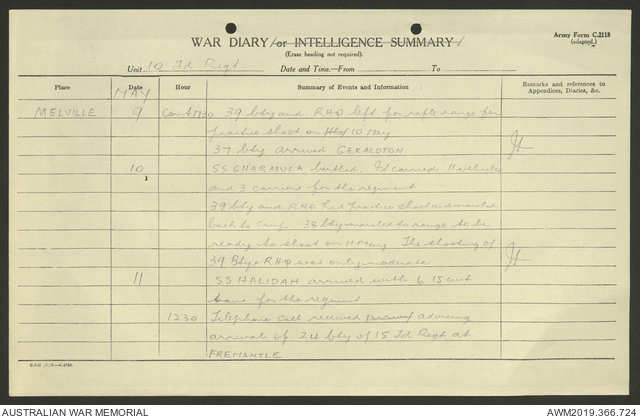 WAR DIARY/or INTELLIGENCE SUMMARY/
(Erase heading not required).
Army Form C.2118
(adapted.)
Unit 10 Fd Regt Date and Time—From To
Place Date Hour Summary of Events and Information Remarks and references to Appendices, Diaries, &c.
MAY
MELVILLE 9 Cont 1730 39 bty and RHQ left for rifle range for
practice shoot on 10 May
37 bty arrived GERALDTON
10 SS GHORMULA berthed. It carried 11 vehicles
and 3 carriers for the regiment
39 bty and RHQ had practice shoot and marched
back to camp. 38 bty marched to range to be
ready to shoot on 11 May. The shooting of
39 Bty & RHQ was only moderate
11 SS HALIDAH arrived with 6 15 cwt
vans for the regiment
1230 Telephone call received advising
arrival of 24 bty of 15 Fd Regt at
FREMANTLE
AUSTRALIAN WAR MEMORIAL
AWM2019.366.724